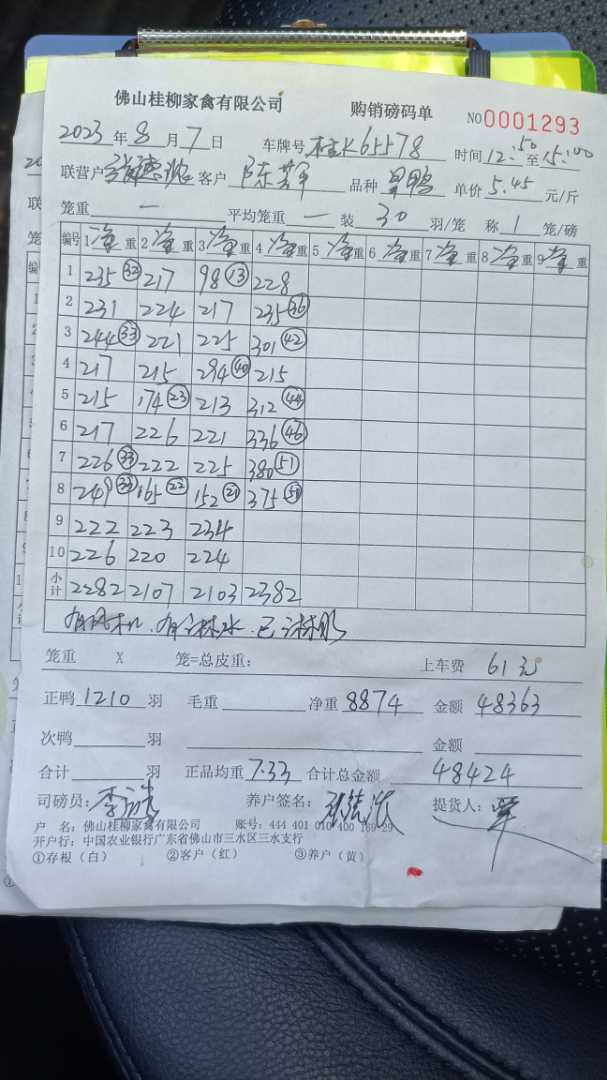 佛山桂柳家禽有限公司 购销磅码单 NO0001293
2023年8月7日 车牌号 桂K65578 时间12:50至15:00
联营户 客户 陈 品种 鸭 单价5.45元/斤
笼重 一 平均笼重 一 装 30 羽/笼 称 1 笼/磅
编号 1净重 2净重 3净重 4净重 5净重 6净重 7净重 8净重 9净重
1 235(32) 217 98(13) 228
2 231 224 217 235(36)
3 244(33) 221 225 301(42)
4 217 215 294(40) 215
5 215 174(23) 213 312(44)
6 217 226 221 336(46)
7 226(33) 222 225 380(51)
8 249 165(22) 152(21) 375
9 222 223 234
10 226 220 224
小计 2282 2107 2103 2382
有风机.有淋水.已淋
笼重 X 笼=总皮重: 上车费 61元
正鸭1210羽 毛重 净重 8874 金额 48363
次鸭 羽 金额
合计 羽 正品均重7.33 合计总金额 48424
司磅员: 李 养户签名: 提货人:
户 名:佛山桂柳家禽有限公司 账号:444 401 010 400 169 29
开户行:中国农业银行广东省佛山市三水区三水支行
①存根(白) ②客户(红) ③养户(黄)